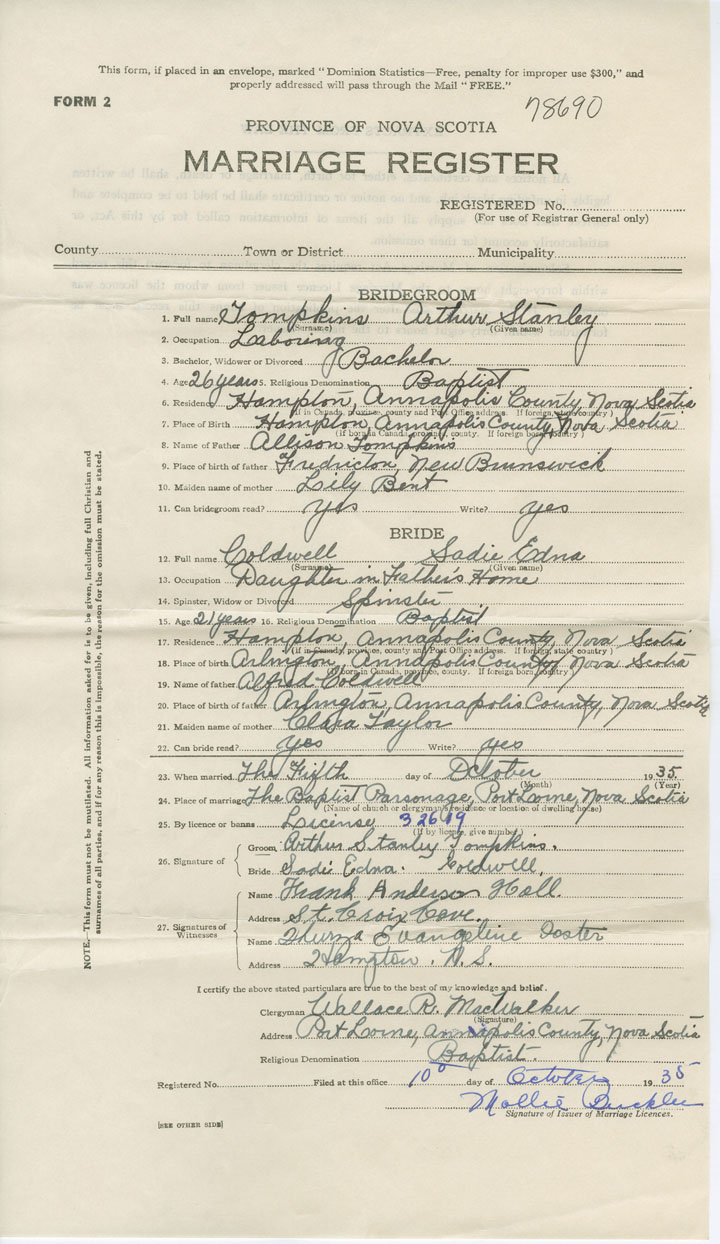 This form, if placed in an envelope, marked "Dominion Statistics—Free, penalty for improper use $300," and
properly addressed will pass through the Mail "FREE."
FORM 2
78690
PROVINCE OF NOVA SCOTIA
MARRIAGE REGISTER
REGISTERED No.
(For use of Registrar General only)
County Town or District Municipality
BRIDEGROOM
1. Full name Tompkins Arthur Stanley
(Surname) (Given name)
2. Occupation Laboring
3. Bachelor, Widower or Divorced Bachelor
4. Age 26 years 5. Religious Denomination Baptist
6. Residence Hampton, Annapolis County, Nova Scotia
(If in Canada, province, county and Post Office address. If foreign, state country)
7. Place of Birth Hampton, Annapolis County, Nova Scotia
(If born in Canada, province, county. If foreign born, country)
8. Name of Father Allison Tompkins
9. Place of birth of father Fredricton, New Brunswick
10. Maiden name of mother Lily Bent
11. Can bridegroom read? yes Write? yes
BRIDE
12. Full name Coldwell Sadie Edna
(Surname) (Given name)
13. Occupation Daughter in Father's Home
14. Spinster, Widow or Divorced Spinster
15. Age 21 years 16. Religious Denomination Baptist
17. Residence Hampton, Annapolis County, Nova Scotia
(If in Canada, province, county and Post Office address. If foreign, state country)
18. Place of birth Arlington, Annapolis County, Nova Scotia
(If born in Canada, province, county. If foreign born, country)
19. Name of father Alfred Coldwell
20. Place of birth of father Arlington, Annapolis County, Nova Scotia
21. Maiden name of mother Clara Taylor
22. Can bride read? yes Write? yes
23. When married The Fifth day of October 1935.
(Month) (Year)
24. Place of marriage The Baptist Parsonage, Port Lorne, Nova Scotia
(Name of church or clergyman's residence or location of dwelling house)
25. By licence or banns License 32619
(If by license, give number)
26. Signature of
Groom Arthur Stanley Tompkins.
Bride Sadie Edna. Coldwell.
27. Signatures of Witnesses
Name Frank Anderson Hall.
Address St. Croix Cove.
Name Evangeline Foster
Address Hampton. N.S.
I certify the above stated particulars are true to the best of my knowledge and belief.
Clergyman Wallace R. MacWalker
(Signature)
Address Port Lorne, Annapolis County, Nova Scotia
Religious Denomination Baptist.
Registered No. Filed at this office 10 day of October 1935
Mollie Buckler
Signature of Issuer of Marriage Licences.
[SEE OTHER SIDE]
NOTE.—This form must not be mutilated. All information asked for is to be given, including full Christian and
surnames of all parties, and if for any reason this is impossible, the reason for the omission must be stated.